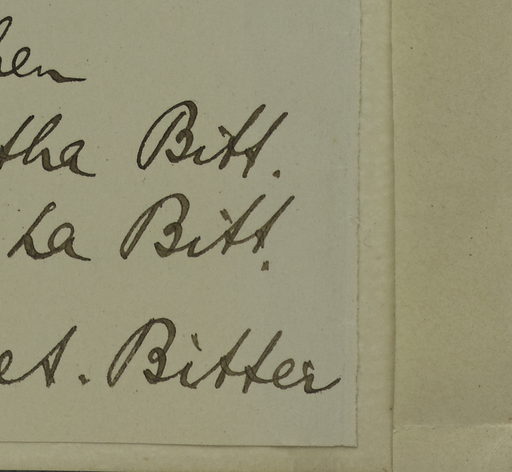 hen
tha Bitt.
ha Bitt.
et. Bitter